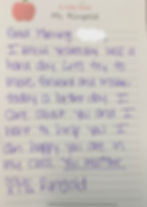 Good Morning
I know yesterday was a
hard day. Lets try to
move forward and make
today a better day. I
care about you and I
want to help you! I
am happy you are in
my class. You matter.